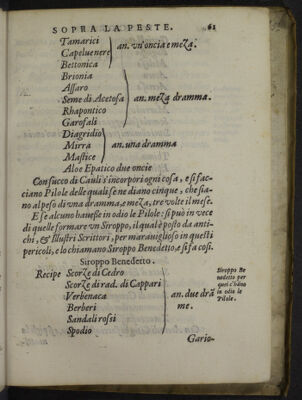 SOPRA LA PESTE. 61
Tamarici
Capeluenere
Bettonica
an. vn'oncia e meza.
Brionia
Assaro
Seme di Acetosa
Rhapontico
Garofali
an. meza dramma.
Diagridio
Mirra
Mastice
an. una dramma
Aloe Epatico due oncie
Con succo di Cauli s'incorpori ogni cosa, e si fac-
ciano Pilole delle quali se ne diano cinque, che sia-
no al peso di vna dramma, e meza, tre volte il mese.
E se alcuno hauesse in odio le Pilole: si può in vece
di quelle formare vn Siroppo, il qual è posto da anti-
chi, & Illustri Scrittori, per marauiglioso in questi
pericoli, e lo chiamano Siroppo Benedetto, e si fa così.
Siroppo Benedetto.
Recipe Scorze di Cedro
Scorze di rad. di Cappari
Verbenaca
Berberi
Sandali rossi
Spodio
an. due drã
me.
Siroppo Be
nedetto per
quei c'hãno
in odio le
Pilole.
Gario-